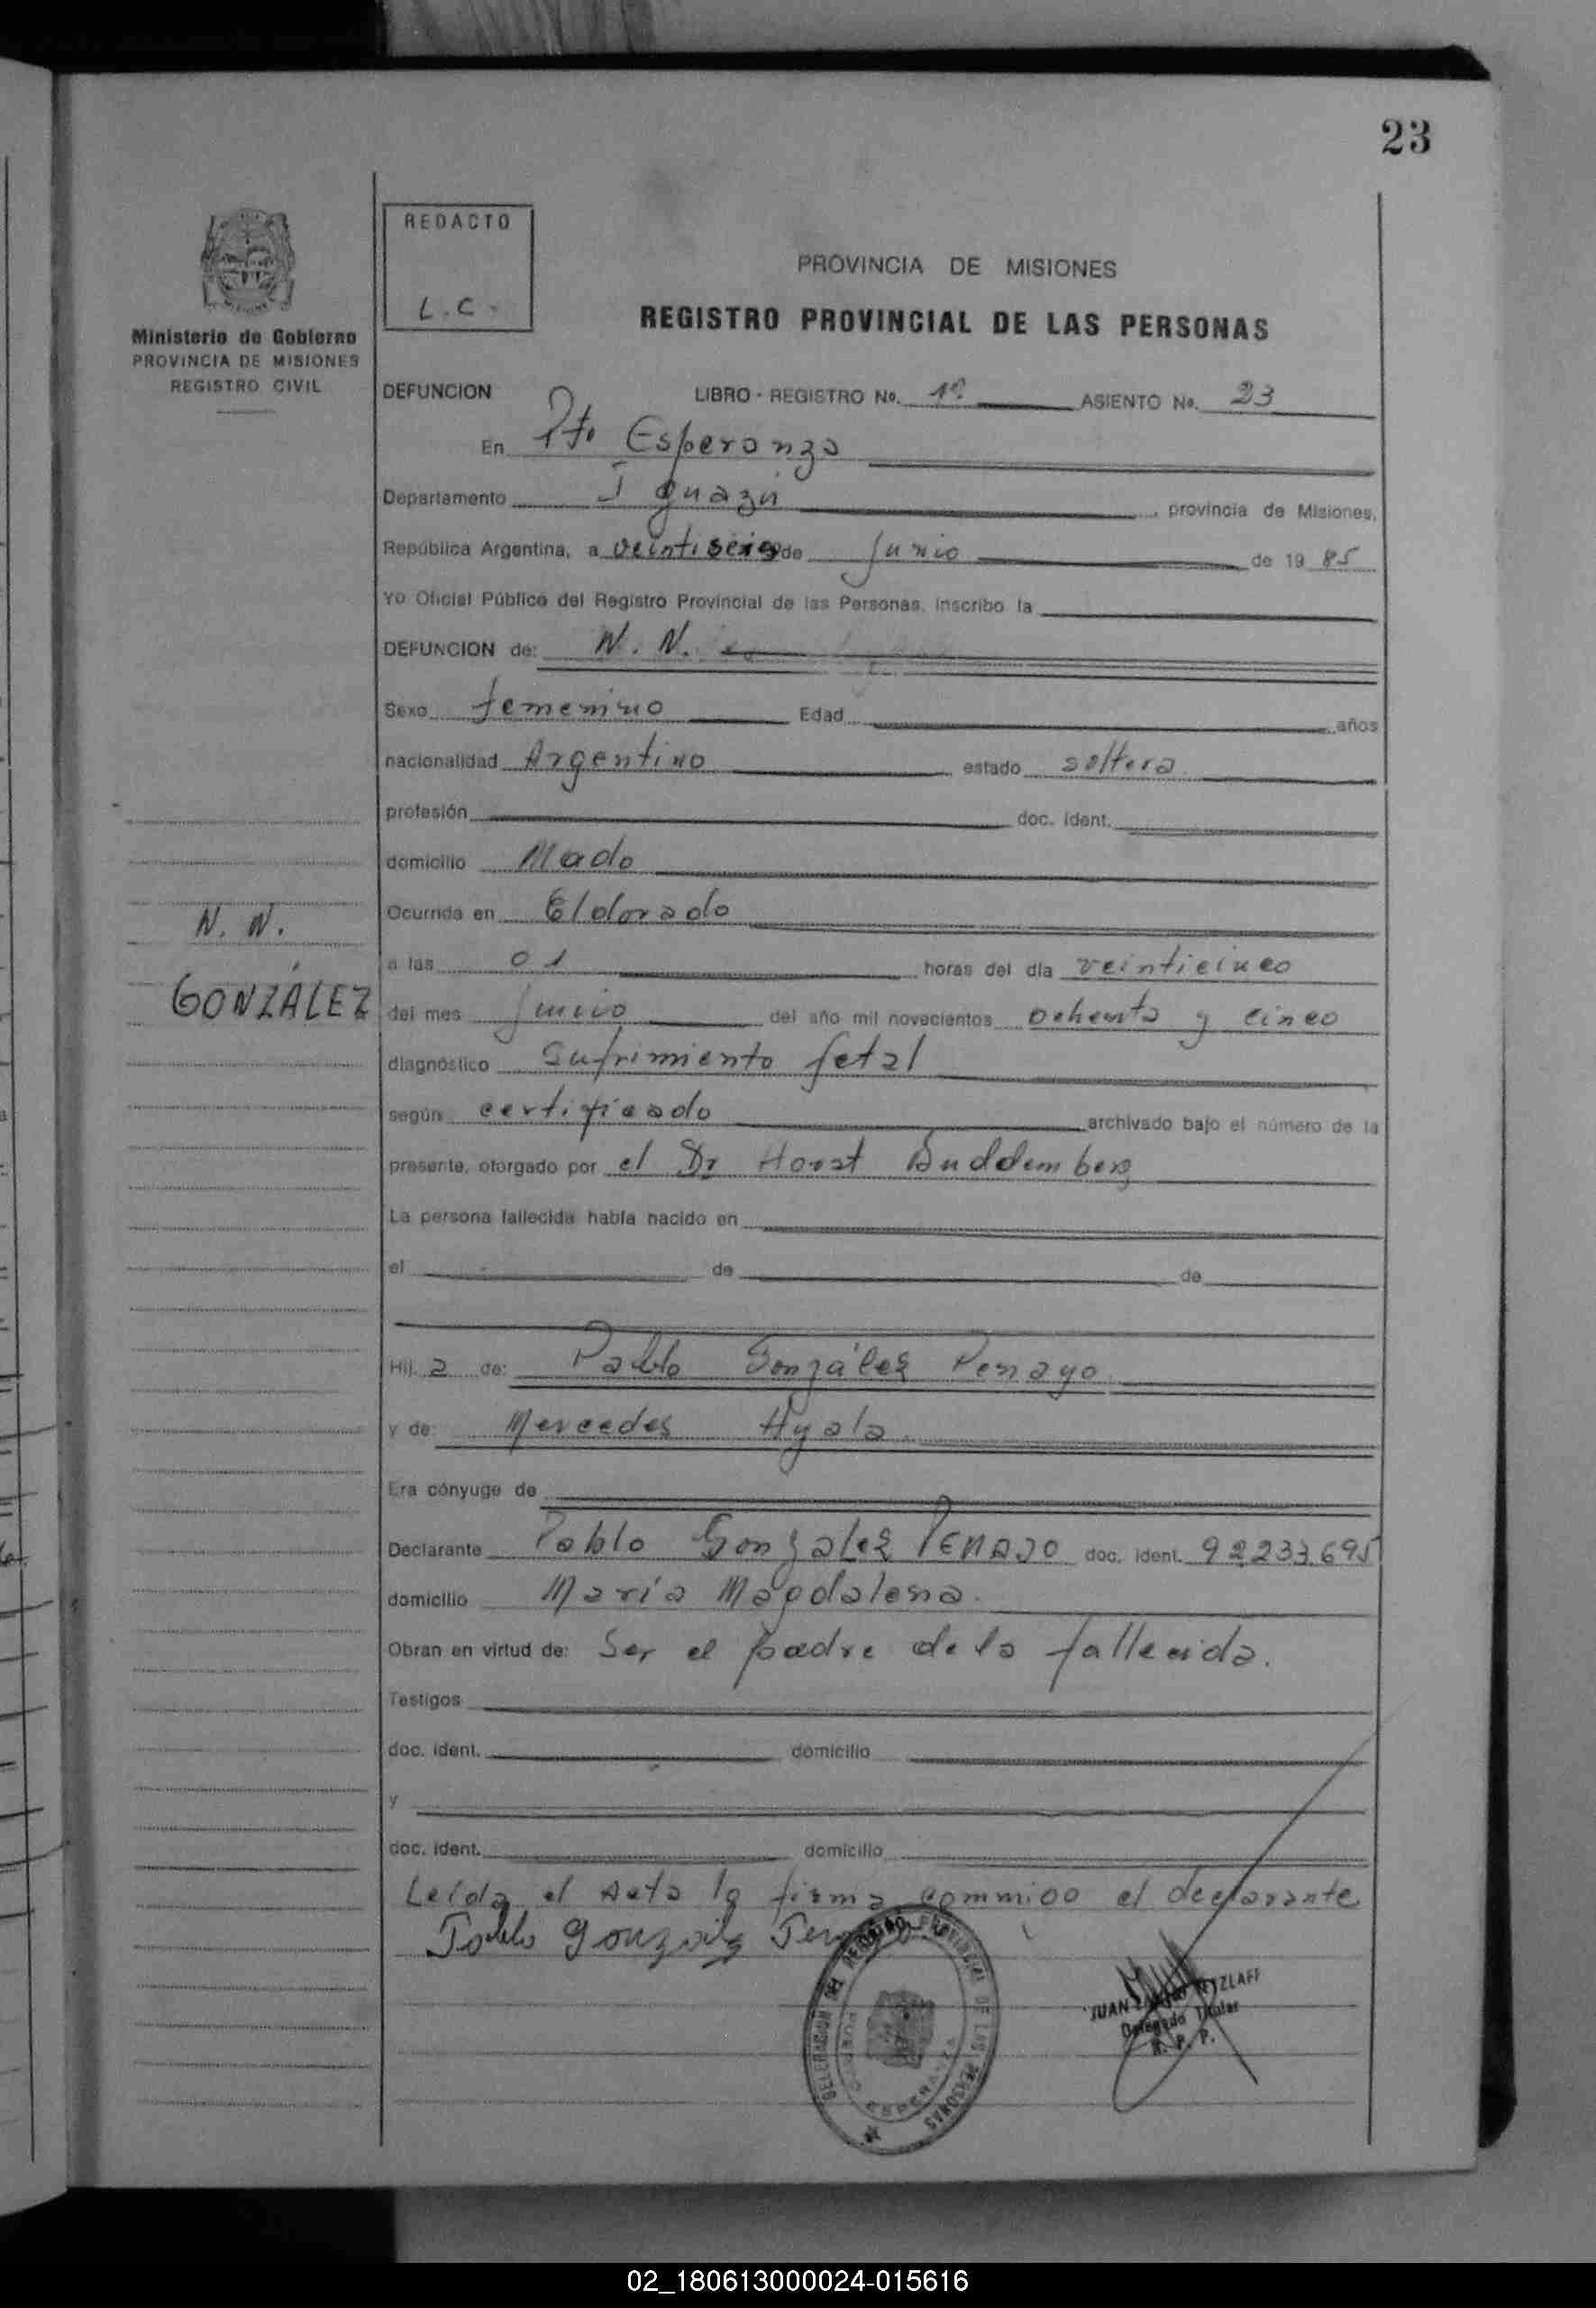 23
REDACTO
L.C.
Ministerio de Gobierno
PROVINCIA DE MISIONES
REGISTRO CIVIL
PROVINCIA DE MISIONES
REGISTRO PROVINCIAL DE LAS PERSONAS
DEFUNCION LIBRO - REGISTRO No. 1º ASIENTO No. 23
En Pto Esperanza
Departamento Iguazú provincia de Misiones,
República Argentina, a veintiseis de Junio de 19 85
Yo Oficial Público del Registro Provincial de las Personas, inscribo la
DEFUNCION de: N. N.
Sexo femenino Edad años
nacionalidad Argentino estado soltera
profesión doc. ident.
domicilio Mado
N. N.
GONZÁLEZ
Ocurrida en Eldorado
a las 01 horas del día veinticinco
del mes Junio del año mil novecientos ochenta y cinco
diagnóstico Sufrimiento fetal
según certificado archivado bajo el número de la
presente, otorgado por el Dr Horst Buddemberg
La persona fallecida había nacido en
el de de
Hij a de: Pablo González Penayo
y de: Mercedes Ayala
Era cónyuge de
Declarante Pablo Gonzalez PENAJO doc. ident. 92233695
domicilio María Magdalena.
Obran en virtud de: Ser el padre de la fallecida.
Testigos
doc. ident. domicilio
y
doc. ident. domicilio
Leída el Acta la firma commigo el declarante
Pablo Gonzalez
DELEGACION DEL REGISTRO PROVINCIAL DE LAS PERSONAS
PUERTO ESPERANZA
JUAN ETZLAFF
Delegado Titular
R. P. P.
02_180613000024-015616